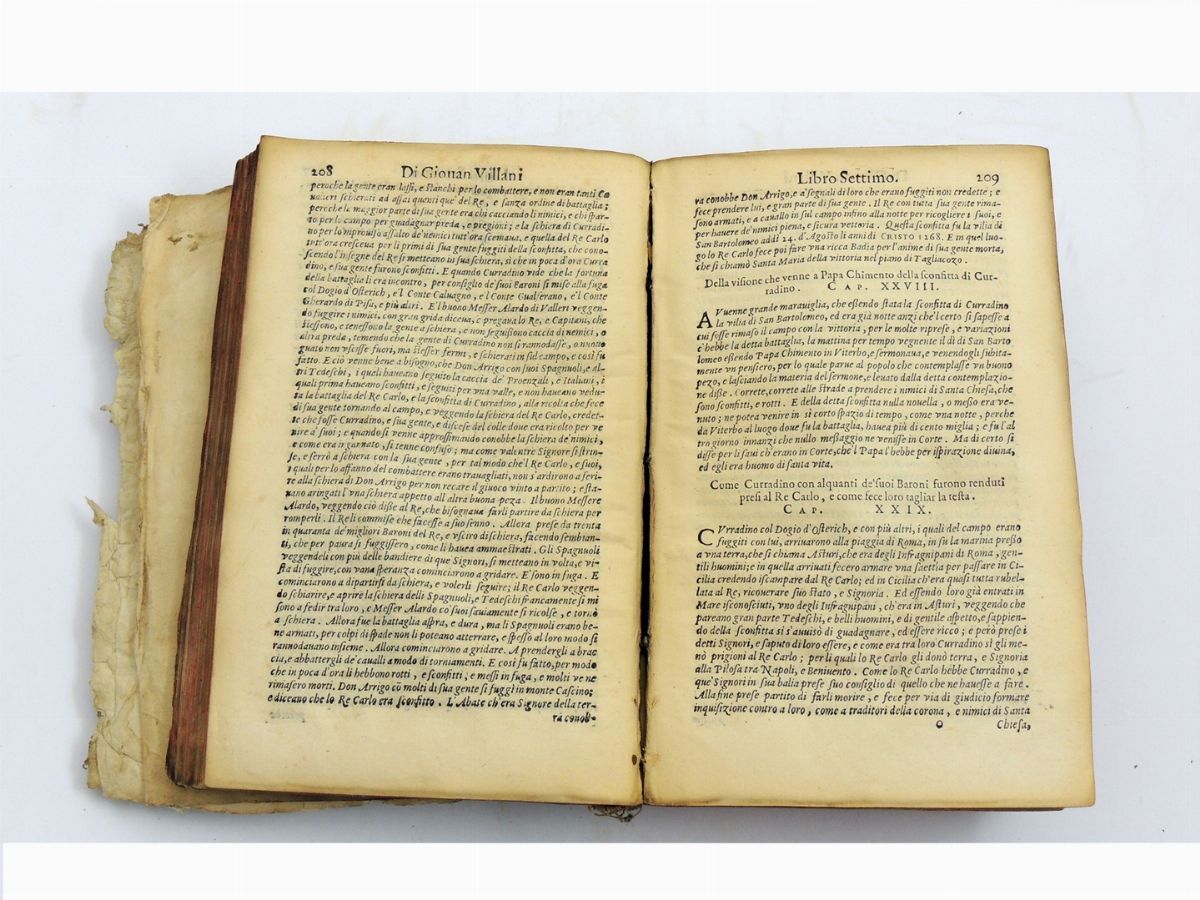 208 Di Giouan Villani
peroche la gente eran lassi, e stanchi per lo combattere, e non eran tanti Ca
ualieri schierati ad assai quenti que' del Re, e sanza ordine di battaglia;
perche la maggior parte di sua gente era chi cacciando li nimici, e chi spar-
to per lo campo per guadagnar preda, e pregioni; e la schiera di Curradi-
no per lo improuiso assalto de' nemici tutt'ora scemaua, e quella del Re Carlo
tutt'ora cresceua per li primi di sua gente fuggiti della sconfitta, che cono-
scendo l'insegne del Re si metteano in sua schiera, sì che in poca d'ora Curra
dino, e sua gente furono sconfitti. E quando Curradino vide che la fortuna
della battaglia li era incontro, per consiglio de' suoi Baroni si mise alla fuga
col Dogio d'Osterich, e'l Conte Caluagno, e'l Conte Gualferano, e'l Conte
Gherardo di Pisa, e più altri. E'l buono Messer Alardo di Valleri veggen-
do fuggire i nimici, con gran grida diceua, e pregaua lo Re, e Capitani, che
stessono, e tenessono la gente a schiera, e non seguissono caccia di nemici, o
altra preda, temendo che la gente di Curradino non si rannodasse, o nuouo
guato non vscisse fuori, ma stesser fermi, e schierati in sul campo, e così fu
fatto. E ciò venne bene a bisogno, che Don Arrigo con suoi Spagnuoli, e al-
tri Tedeschi, i quali haueano seguito la caccia de' Proenzali, e Italiani, i
quali prima haueano sconfitti, e seguiti per vna valle, e non haueano vedu-
ta la battaglia del Re Carlo, e la sconfitta di Curradino, alla ricolta che fece
di sua gente tornando al campo, e veggendo la schiera del Re Carlo, credet-
te che fosse Curradino, e sua gente, e discese del colle doue era ricolto per ve
nire a' suoi; e quando si venne approssimando conobbe la schiera de' nimici,
e come era ingannato, si tenne confuso; ma come valentre Signore si strin-
se, e serrò a schiera con la sua gente, per tal modo che'l Re Carlo, e suoi,
i quali per lo affanno del combattere erano trauagliati, non s'ardirono a feri-
re alla schiera di Don Arrigo per non recare il giuoco vinto a partito; e sta-
uano aringati l'vna schiera appetto all altra buona peza. Il buono Messere
Alardo, veggendo ciò disse al Re, che bisognaua farli partire da schiera per
romperli. Il Re li commise che facesse a suo senno. Allora prese da trenta
in quaranta de' migliori Baroni del Re, e vsciro di schiera, facendo sembian-
ti, che per paura si fuggissero, come li hauea ammaestrati. Gli Spagnuoli
veggendeli con più delle bandiere di que Signori, si metteano in volta, e vi-
sta di fuggire, con vana speranza cominciarono a gridare. E' sono in fuga. E
cominciarono a dipartirsi da schiera, e volerli seguire; il Re Carlo veggen-
do schiarire, e aprire la schiera delli Spagnuoli, e Tedeschi francamente si mi
sono a fedir tra loro, e Messer Alardo co' suoi sauiamente si ricolse, e tornò
a schiera. Allora fue la battaglia aspra, e dura, ma li Spagnuoli erano be-
ne armati, per colpi di spade non li poteano atterrare, e spesso al loro modo si
rannodauano insieme. Allora cominciarono a gridare. A prendergli a brac-
cia, e abbattergli de' caualli a modo di torniamenti. E così fu fatto, per modo
che in poca d'ora li hebbono rotti, e sconfitti, e messi in fuga, e molti ve ne
rimasero morti. Don Arrigo cō molti di sua gente si fuggì in monte Cascino;
e diceano che lo Re Carlo era sconfitto. L'Abate ch'era Signore della ter-
ra conob-
Libro Settimo. 209
ra conobbe Don Arrigo, e a' segnali di loro che erano fuggiti non credette; e
fece prendere lui, e gran parte di sua gente. Il Re con tutta sua gente rima-
sono armati, e a cauallo in sul campo infino alla notte per ricogliere i suoi, e
per hauere de' nimici piena, e sicura vettoria. Questa sconfitta fu la vilia di
San Bartolomeo addì 24. d'Agosto li anni di CRISTO 1268. E in quel luo-
go lo Re Carlo fece poi fare vna ricca Badia per l'anime di sua gente morta,
che si chiamò Santa Maria della vittoria nel piano di Tagliacozo.
Della visione che venne a Papa Chimento della sconfitta di Cur-
radino. CAP. XXVIII.
AVuenne grande marauiglia, che essendo stata la sconfitta di Curradino
la vilia di San Bartolomeo, ed era già notte anzi che'l certo si sapesse a
cui fosse rimaso il campo con la vittoria, per le molte riprese, e variazioni
c'hebbe la detta battaglia, la mattina per tempo vegnente il dì di San Barto
lomeo essendo Papa Chimento in Viterbo, e sermonaua, e venendogli subita-
mente vn pensiero, per lo quale parue al popolo che contemplasse vn buono
pezo, e lasciando la materia del sermone, e leuato dalla detta contemplazio-
ne disse. Correte, correte alle strade a prendere i nimici di Santa Chiesa, che
sono sconfitti, e rotti. E della detta sconfitta nulla nouella, o messo era ve-
nuto; ne potea venire in sì corto spazio di tempo, come vna notte, perche
da Viterbo al luogo doue fu la battaglia, hauea più di cento miglia; e fu l'al
tro giorno innanzi che nullo messaggio ne venisse in Corte. Ma di certo si
disse per li saui ch'erano in Corte, che'l Papa l'hebbe per ispirazione diuina,
ed egli era huomo di santa vita.
Come Curradino con alquanti de' suoi Baroni furono renduti
presi al Re Carlo, e come fece loro tagliar la testa.
CAP. XXIX.
CVrradino col Dogio d'Osterich, e con più altri, i quali del campo erano
fuggiti con lui, arriuarono alla piaggia di Roma, in su la marina presso
a vna terra, che si chiama Asturi, che era degli Infragnipani di Roma, gen-
tili huomini; e in quella arriuati fecero armare vna saettia per passare in Ci-
cilia credendo iscampare dal Re Carlo; ed in Cicilia ch'era quasi tutta rubel-
lata al Re, ricouerare suo stato, e Signoria. Ed essendo loro già entrati in
Mare isconosciuti, vno degli Infragnipani, ch'era in Asturi, veggendo che
pareano gran parte Tedeschi, e belli huomini, e di gentile aspetto, e sappien-
do della sconfitta si s'auuisò di guadagnare, ed essere ricco; e però prese i
detti Signori, e saputo di loro essere, e come era tra loro Curradino sì gli me-
nò prigioni al Re Carlo; per li quali lo Re Carlo gli donò terra, e Signoria
alla Pilosa tra Napoli, e Beniuento. Come lo Re Carlo hebbe Curradino, e
que' Signori in sua balìa prese suo consiglio di quello che ne hauesse a fare.
Alla fine prese partito di farli morire, e fece per via di giudicio formare
inquisizione contro a loro, come a traditori della corona, e nimici di Santa
O Chiesa,